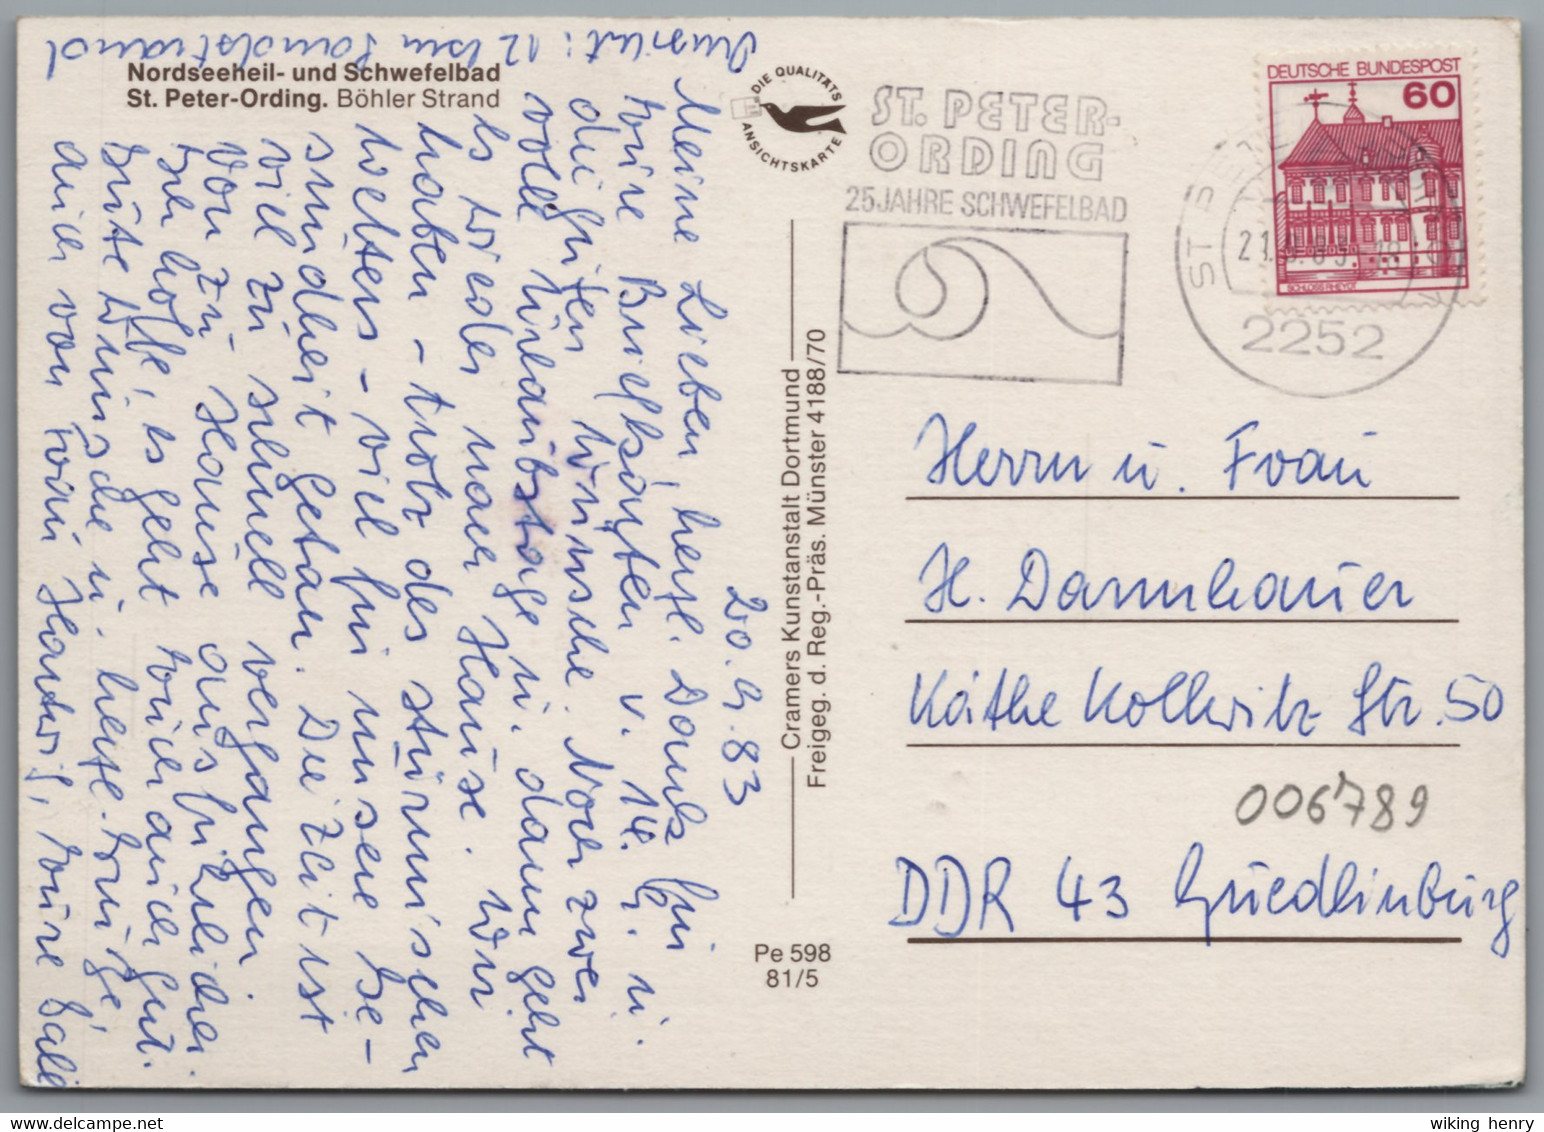 Ansicht: 12 km Sandstrand
Nordseeheil- und Schwefelbad
St. Peter-Ording. Böhler Strand
20.9.83
Meine Lieben, herzl. Dank für
Eure Brief karten v. 14. 9. u.
die guten Wünsche. Noch zwei
volle Urlaubstage u. dann geht
es wieder nach Hause. Wir
haben - trotz des stürmischen
Wetters - viel für unsere Ge-
sundheit getan. Die Zeit ist
viel zu schnell vergangen.
Von zu Hause ausführlicher.
Ich hoffe, es geht Euch auch gut.
Gute Wünsche u. herzl. Grüße,
auch von Frau Hartwig, Eure
DIE QUALITÄTS
ANSICHTSKARTE
Cramers Kunstanstalt Dortmund
Freigeg. d. Reg.-Präs. Münster 4188/70
Pe 598
81/5
ST. PETER-
ORDING
25 JAHRE SCHWEFELBAD
DEUTSCHE BUNDESPOST
60
SCHLOSS RHEYDT
2252
Herrn u. Frau
H. Dannhauer
Käthe Kollwitz Str. 50
006789
DDR 43 Quedlinburg
wiking henry